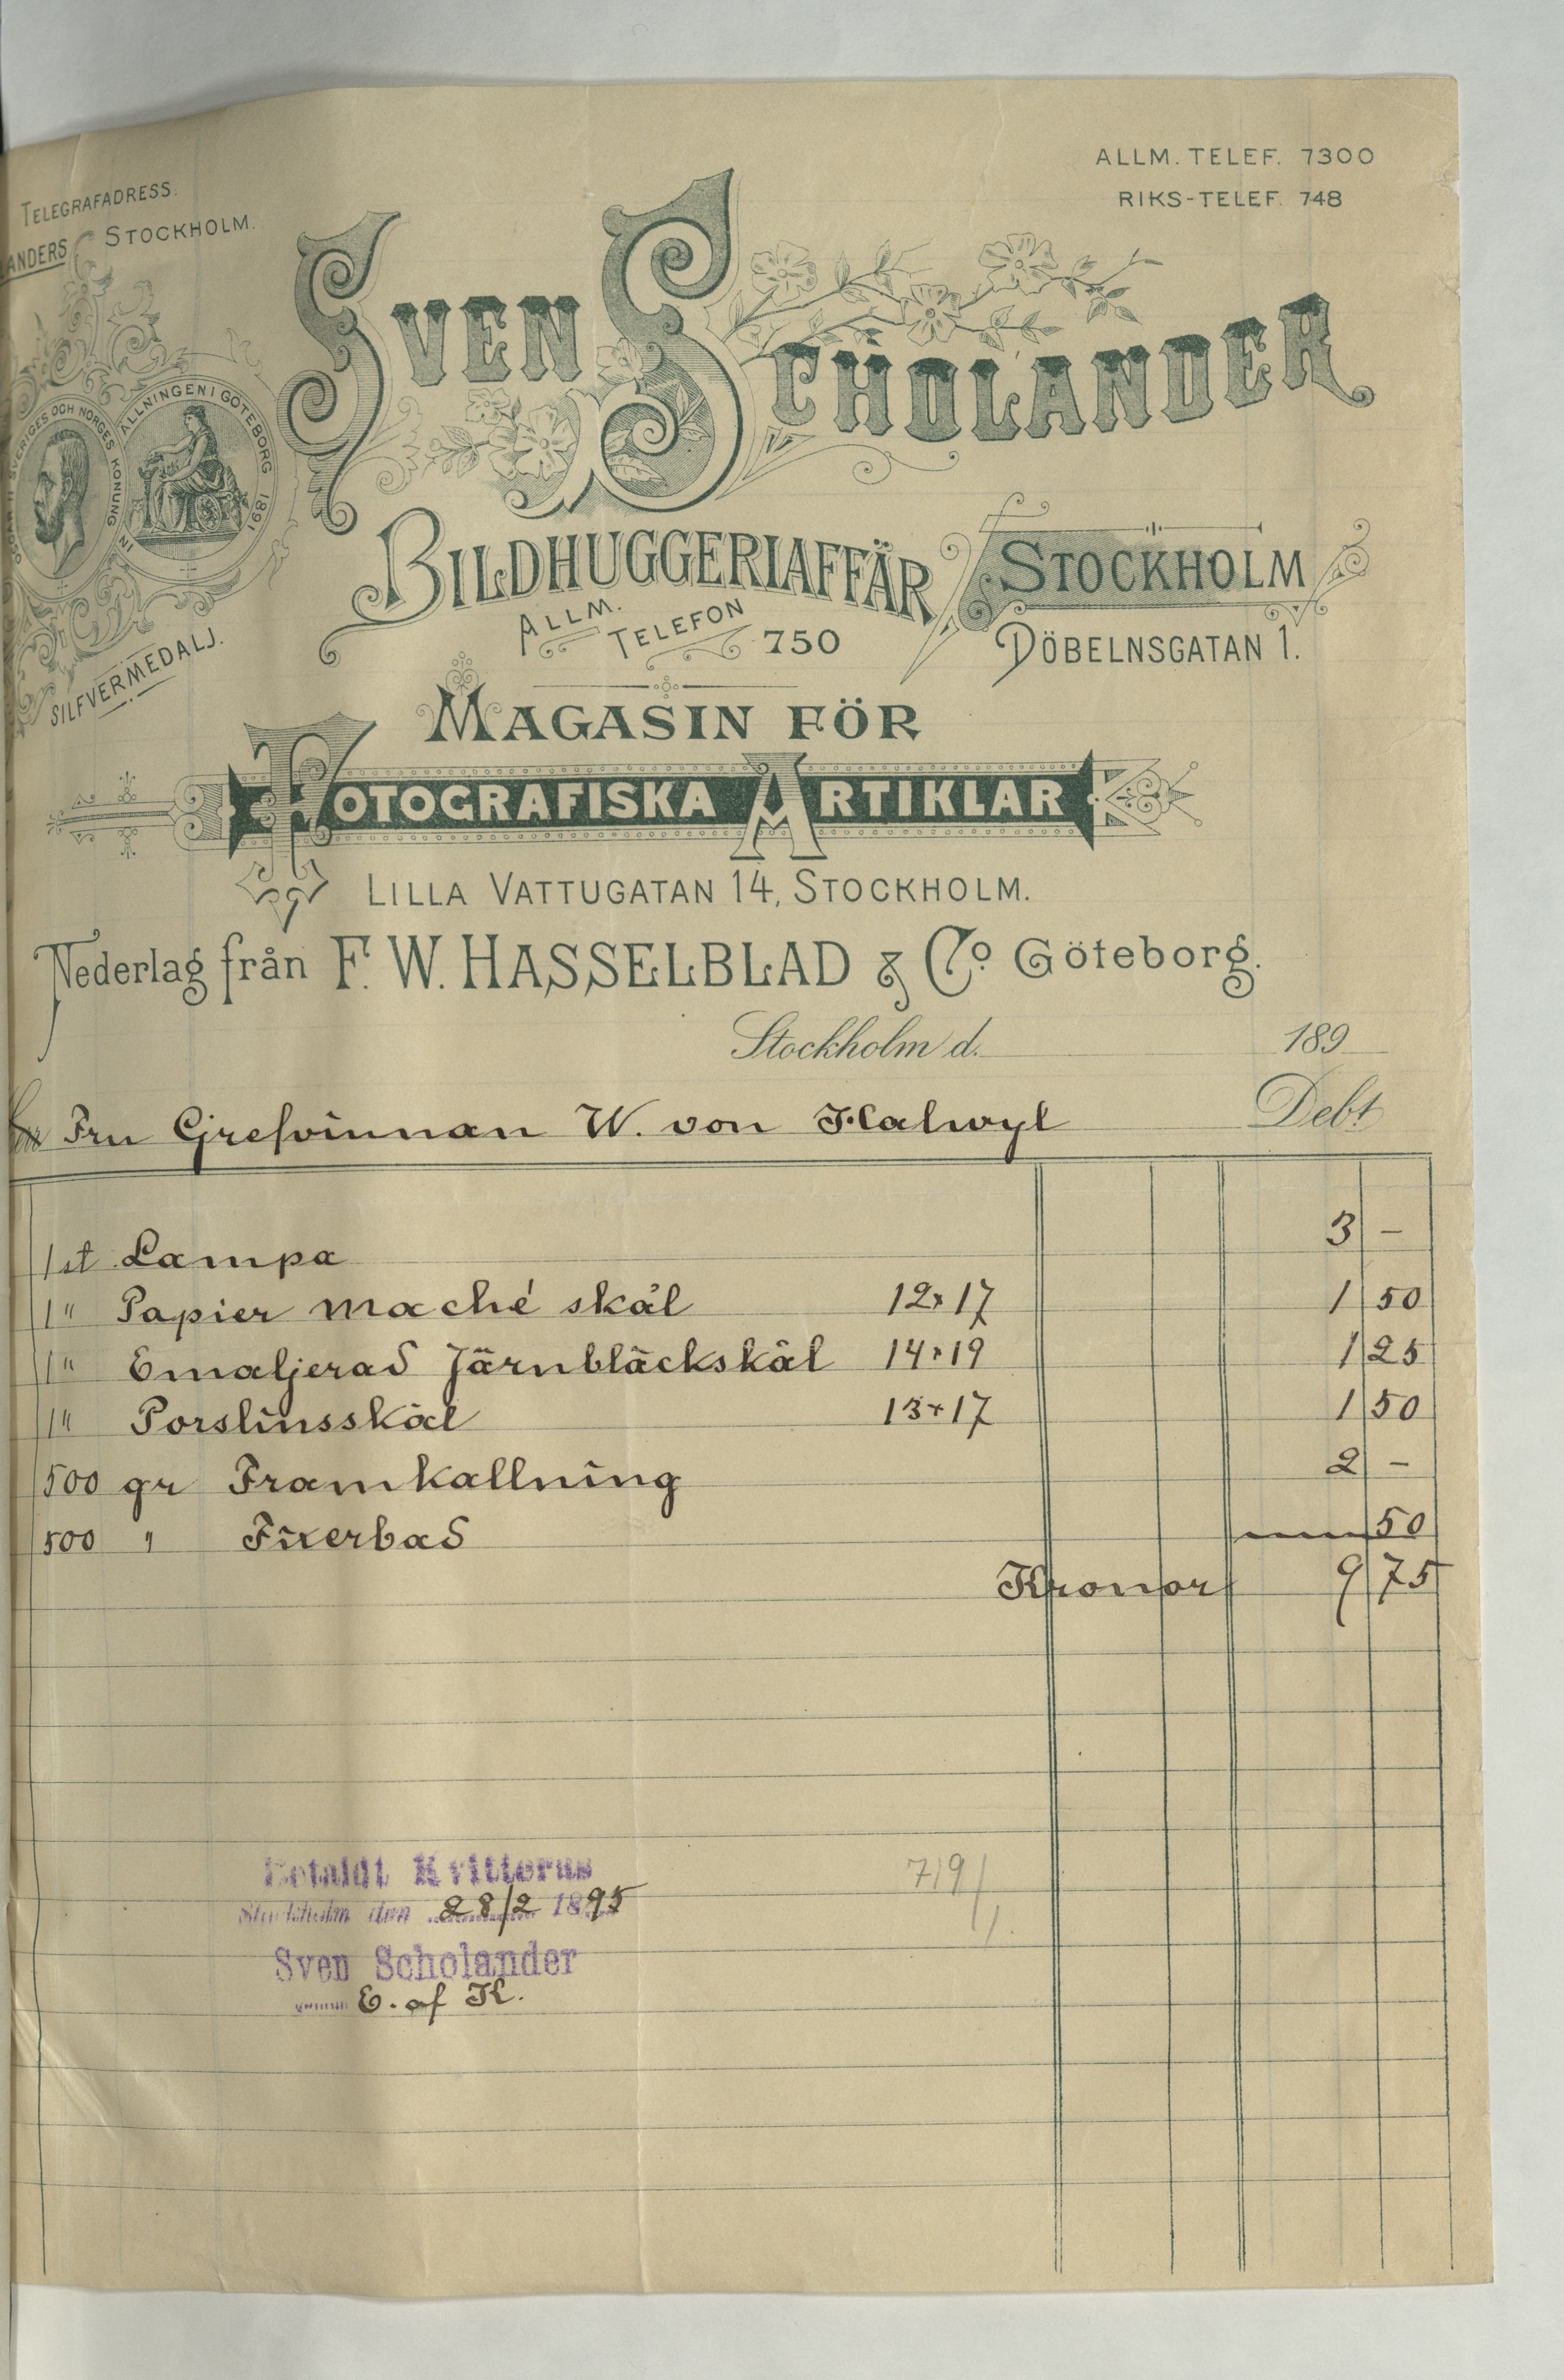 TELEGRAFADRESS.
ANDERS STOCKHOLM.
ALLM. TELEF. 7300
RIKS-TELEF. 748
SVEN SCHOLANDER
SVERIGES OCH NORGES KONUNG
IN ÄLLNINGEN I GÖTEBORG 1891
SILFVERMEDALJ.
BILDHUGGERIAFFÄR
ALLM. TELEFON 750
STOCKHOLM
DÖBELNSGATAN 1.
MAGASIN FÖR
FOTOGRAFISKA ARTIKLAR
LILLA VATTUGATAN 14, STOCKHOLM.
Nederlag från F. W. HASSELBLAD & Co. Göteborg.
Stockholm d. 189
Fru Grefvinnan W. von Halwyl Debt
1 st Lampa 3 -
1 " Papier maché skål 12x17 1 50
1 " Emaljerad Järnbläckskål 14x19 1 25
1 " Porslinsskål 13x17 1 50
500 gr Framkallning 2 -
500 " Fixerbad 50
Kronor 9 75
Betaldt Kvitteras
Stockholm den 28/2 1895
Sven Scholander
genom E. af K.
719/1.